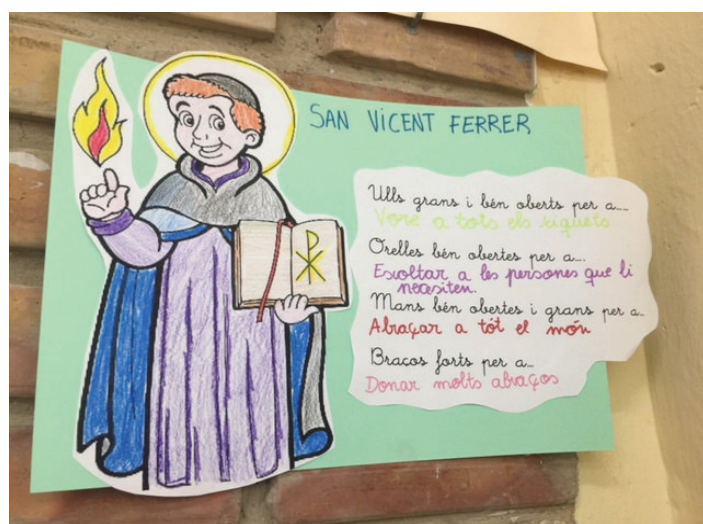 SAN VICENT FERRER
Ulls grans i bén oberts per a....
Vore a tots els xiquets
Orelles bén obertes per a...
Escoltar a les persones que li
necesiten.
Mans bén obertes i grans per a...
Abraçar a tót el món
Braços forts per a...
Donar molts abraços